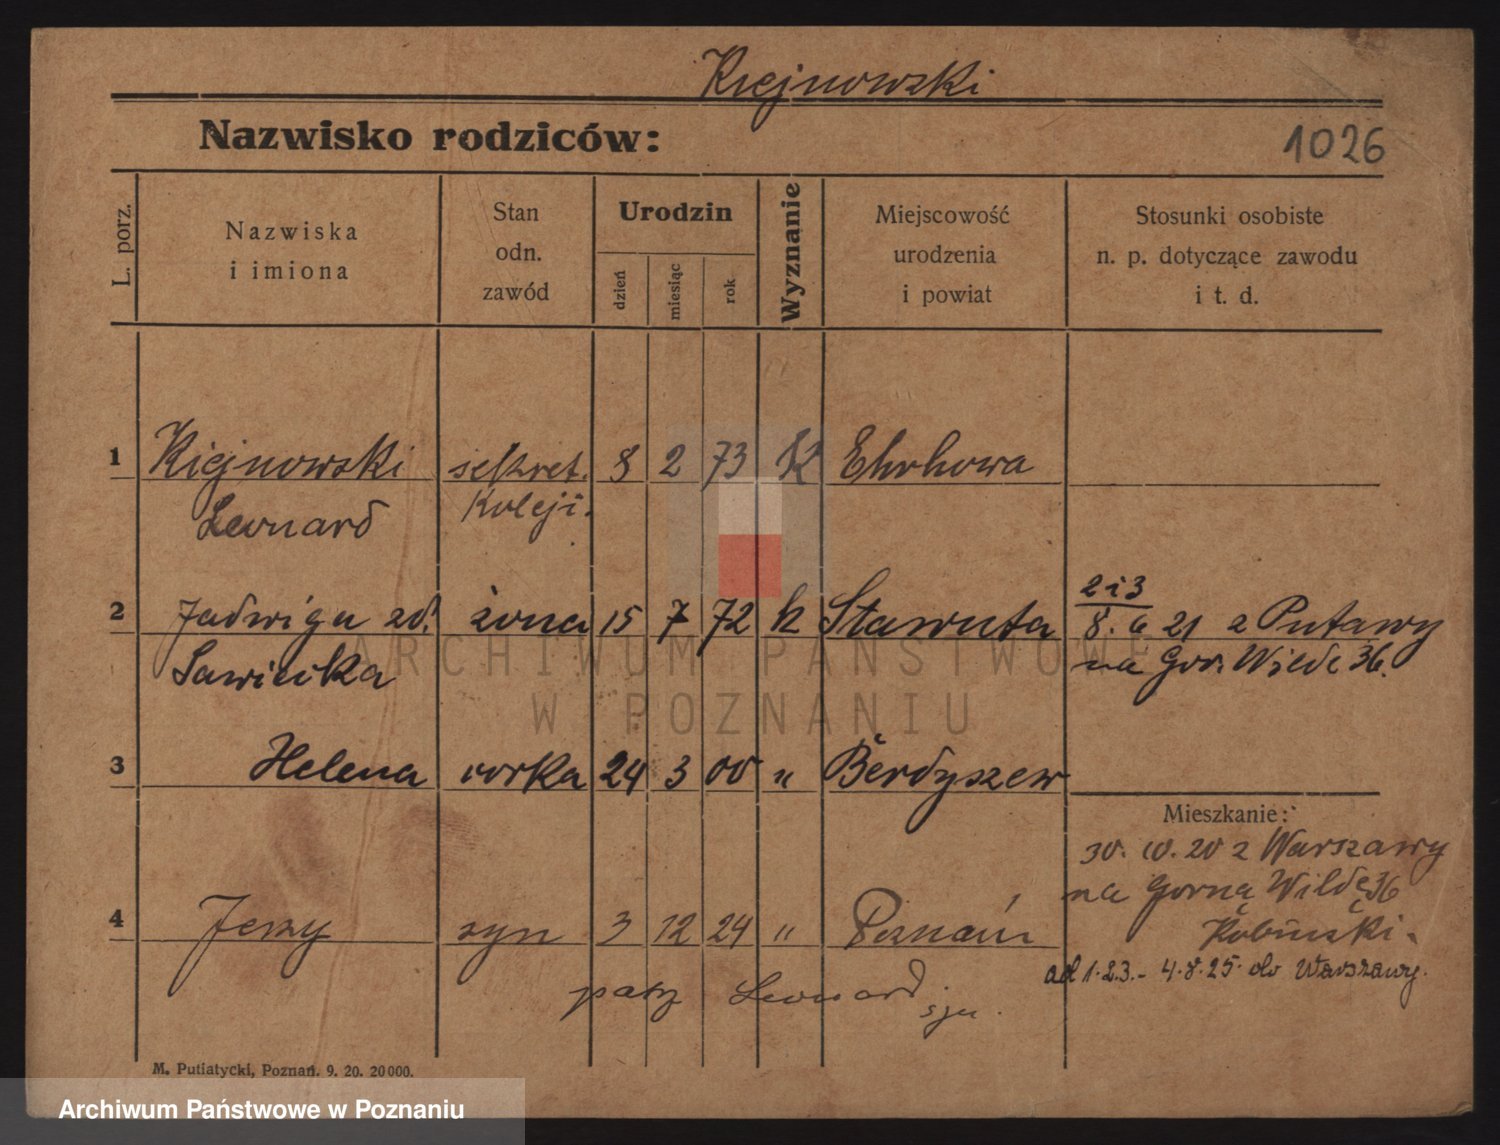 Kiejnowski
Nazwisko rodziców:
1026
L. porz.
Nazwiska
i imiona
Stan
odn.
zawód
Urodzin
dzień
miesiąc
rok
Wyznanie
Miejscowość
urodzenia
i powiat
Stosunki osobiste
n. p. dotyczące zawodu
i t. d.
1 Kiejnowski sekret. 8 2 73 K
Leonard Koleji.
2 Jadwiga zd. żona 15 7 72 k Sławuta
Sawicka
2 i 3
8. 6 21 z Puławy
na Gór. Wildę 36.
3 Helena córka 24 3 00 " Berdyszew
Mieszkanie:
30. 10. 20 z Warszawy
na Górną Wildę 36
4 Jerzy syn 3 12 24 " Poznań
ad 1.2.3.- 4.8.25. do Warszawy.
patrz Leonard
syn.
M. Putiatycki, Poznań. 9. 20. 20000.
ARCHIWUM PAŃSTWOWE
W POZNANIU
Archiwum Państwowe w Poznaniu